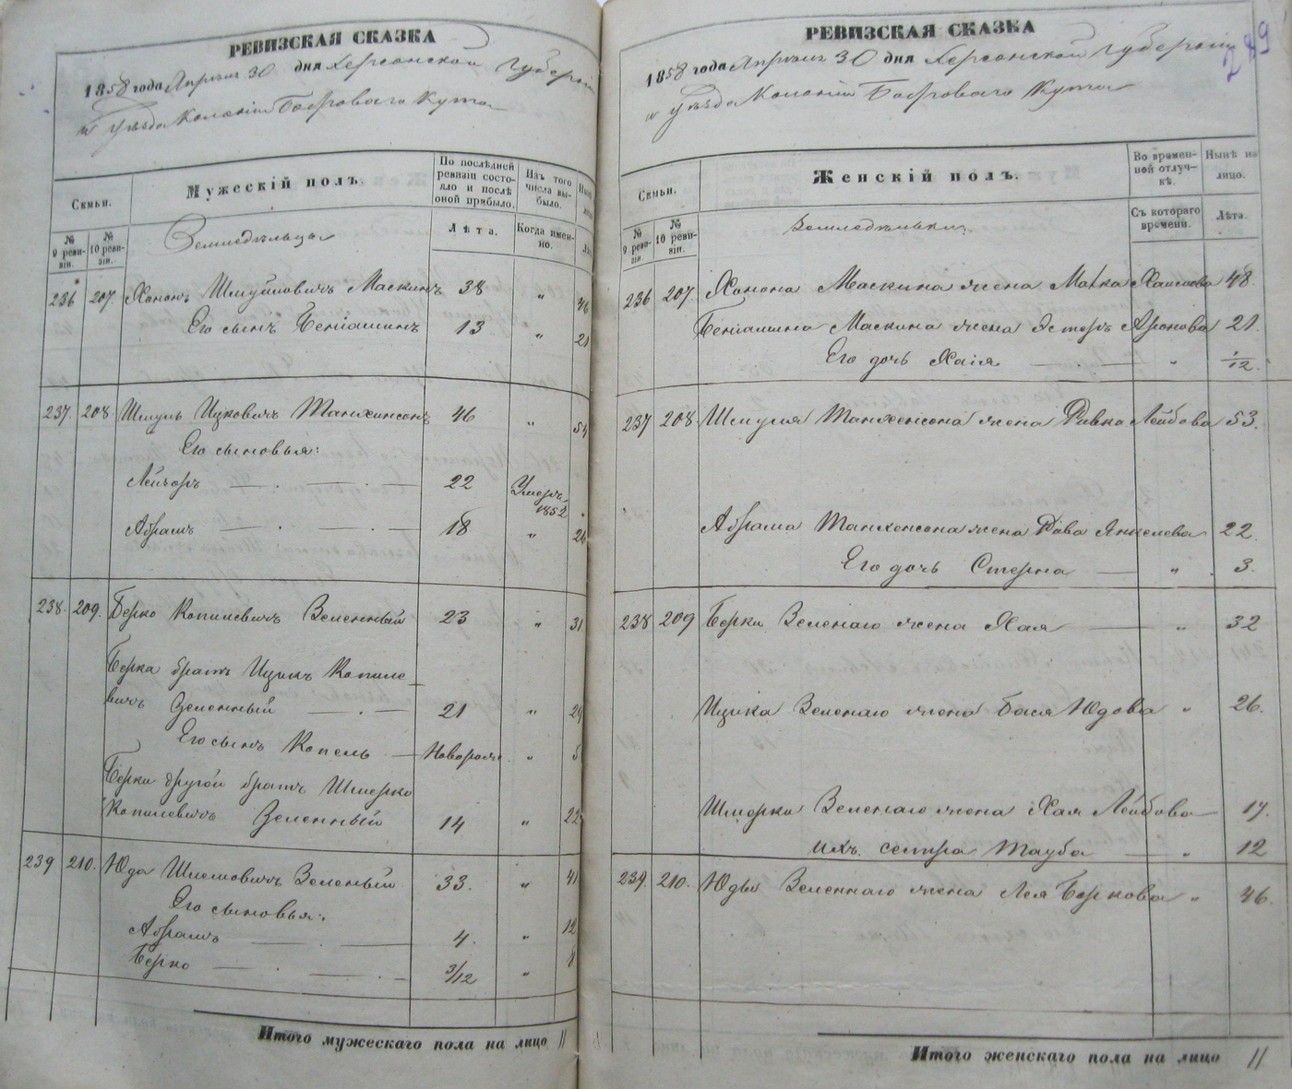 РЕВИЗСКАЯ СКАЗКА
1858 года Апреля 30 дня Херсонской Губерніи
и уѣзда Колоніи Боброваго Кута
Семьи.
Мужескій полъ.
По послѣдней ревизіи состояло и послѣ оной прибыло.
Изъ того числа выбыло.
№ 9 ревизіи.
№ 10 ревизіи.
Земледѣльцы
Лѣта.
Когда именно.
236 207. Хононъ Шмуйловичъ Маскинъ 38 " 46
Его сынъ Беніаминъ 13 " 21
237. 208. Шмуль Ицковичъ Танхинсонъ 46 " 54
Его сыновья:
Лейзоръ 22 Умеръ 1852
Абрамъ 18 " 26
238. 209. Берко Копилевичъ Зеленный 23 " 31
Берка братъ Ицикъ Копиле-
вичъ Зеленный 21 " 29
Его сынъ Копель Новорож. " 8
Берки другой братъ Шмерко
Копилевичъ Зеленный 14 " 22
239 210. Юда Шлемовичъ Зеленый 33. " 41
Его сыновья:
Абрамъ 4. " 12
Берко 3/12 " 8
Итого мужескаго пола на лицо 11
249
РЕВИЗСКАЯ СКАЗКА
1858 года Апреля 30 дня Херсонской Губерніи
и уѣзда Колоніи Боброваго Кута
Семьи.
Женскій полъ.
Во временной отлучкѣ.
Нынѣ на лицо.
№ 9 ревизіи.
№ 10 ревизіи.
Земледѣльцы
Съ котораго времени.
Лѣта.
236 207. Хонона Маскина жена Малка Хаимова 48.
Беніамина Маскина жена Эстеръ Аронова 21.
Его дочь Хаія " 1/12.
237 208. Шмуля Танхенсона жена Ривка Лейбова 53.
Абрама Танхенсона жена Рива Янкелева 22.
Его дочь Стерна " 3.
238 209 Берки Зеленаго жена Хая " 32
Ицика Зеленаго жена Бася Юдова " 26.
Шмерки Зеленаго жена Хая Лейбова 17.
Ихъ сестра Тауба " 12
239. 210. Юды Зеленнаго жена Лея Беркова " 46.
Итого женскаго пола на лицо 11